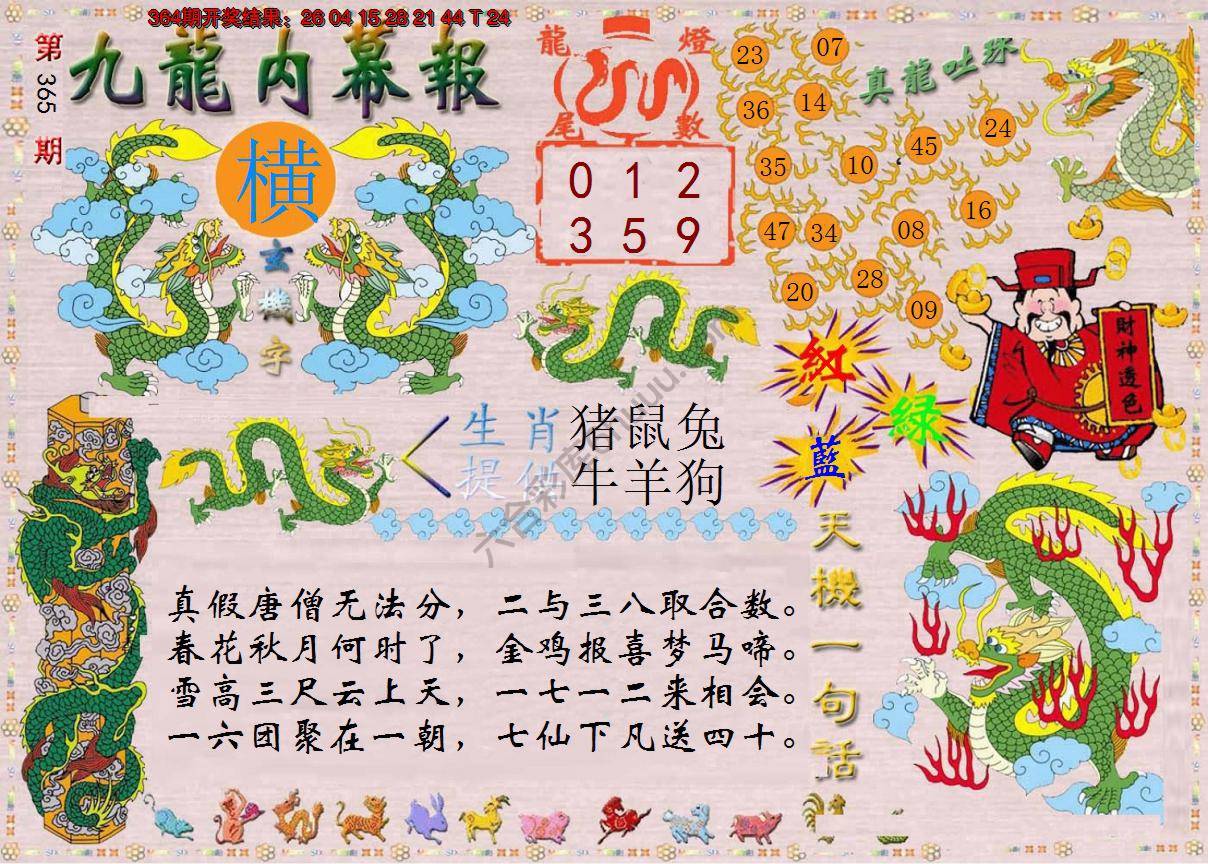 364期开奖结果：26 04 15 28 21 44 T 24
第365期
九龍内幕報
横
玄機字
龍燈
尾數
0 1 2
3 5 9
真龍吐珠
23 07
36 14
45 24
35 10
16
47 34 08
28
20 09
財神透色
紅
綠
藍
生肖 猪鼠兔
提供 牛羊狗
六合彩库
天機一句話
真假唐僧无法分，二与三八取合数。
春花秋月何时了，金鸡报喜梦马啼。
雪高三尺云上天，一七一二来相会。
一六团聚在一朝，七仙下凡送四十。